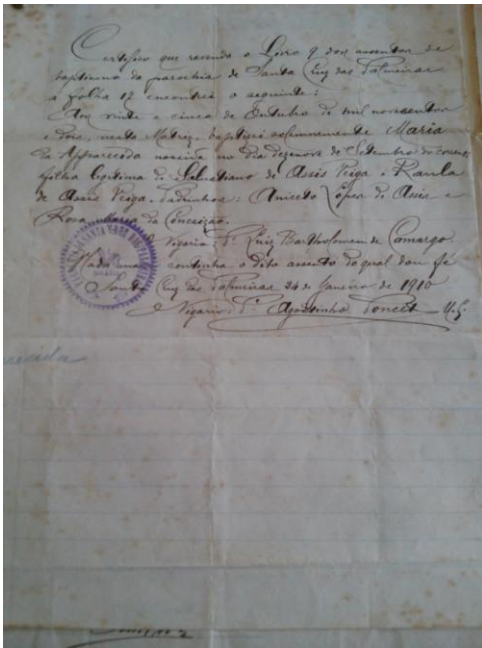 Certifico que revendo o Livro 9 dos assentos de
baptismo da parochia de Santa Cruz das Palmeiras
a folha 12 encontrei o seguinte:
Aos vinte e cinco de Outubro de mil novecentos
e dois, nesta Matriz, baptisei solemnemente Maria
da Apparecida nascida no dia dezenove de Setembro do corrente,
filha legitima de Salustiano de Assis Veiga e Paula
de Assis Veiga. Padrinhos: Aniceto Lopes de Assis e
Rosa Maria da Conceição.
O Vigario: Pe. Luiz Bartholomeu de Camargo.
Nada mais continha o dito assento do qual dou fé
Santa Cruz das Palmeiras 24 de Janeiro de 1910
O Vigario: Pe. Agostinho Poncet